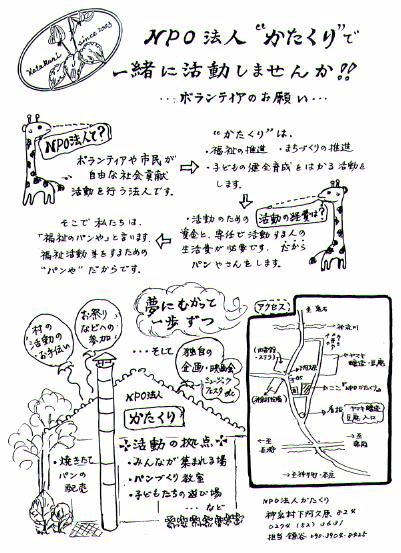 Katakuri
since 2003
NPO法人“かたくり”で
一緒に活動しませんか!!
…ボランティアのお願い…
NPO法人て?
ボランティアや市民が
自由な社会貢献
活動を行う法人です。
“かたくり”は、
・福祉の推進 ・まちづくりの推進
・子どもの健全育成をはかる活動を
します。
活動の経費は?
・活動のための
資金と、専任で活動する人の
生活費が必要です。だから
パンやさんをします。
そこで私たちは、
「福祉のパンや」と言います。
福祉活動をするための
“パンや”だからです。
夢にむかって
一歩ずつ
村の
活動の
お手伝い
お祭り
などへの
参加
…そして
独自の
企画・映画会
ミュージック
フェスタ etc
NPO法人
かたくり
活動の拠点
・焼きたて
パンの
配売
・みんなが集まれる場
・パンづくり教室
・子どもたちの遊び場
…など
アクセス
至
神流川
ヤマキ
醸造・豆庵
ここ“NPOかたくり”
看板
ヤマキ醸造
豆庵入口
至
至
NPO法人かたくり
神泉村下阿久原824
0274 (52) 3631
担当